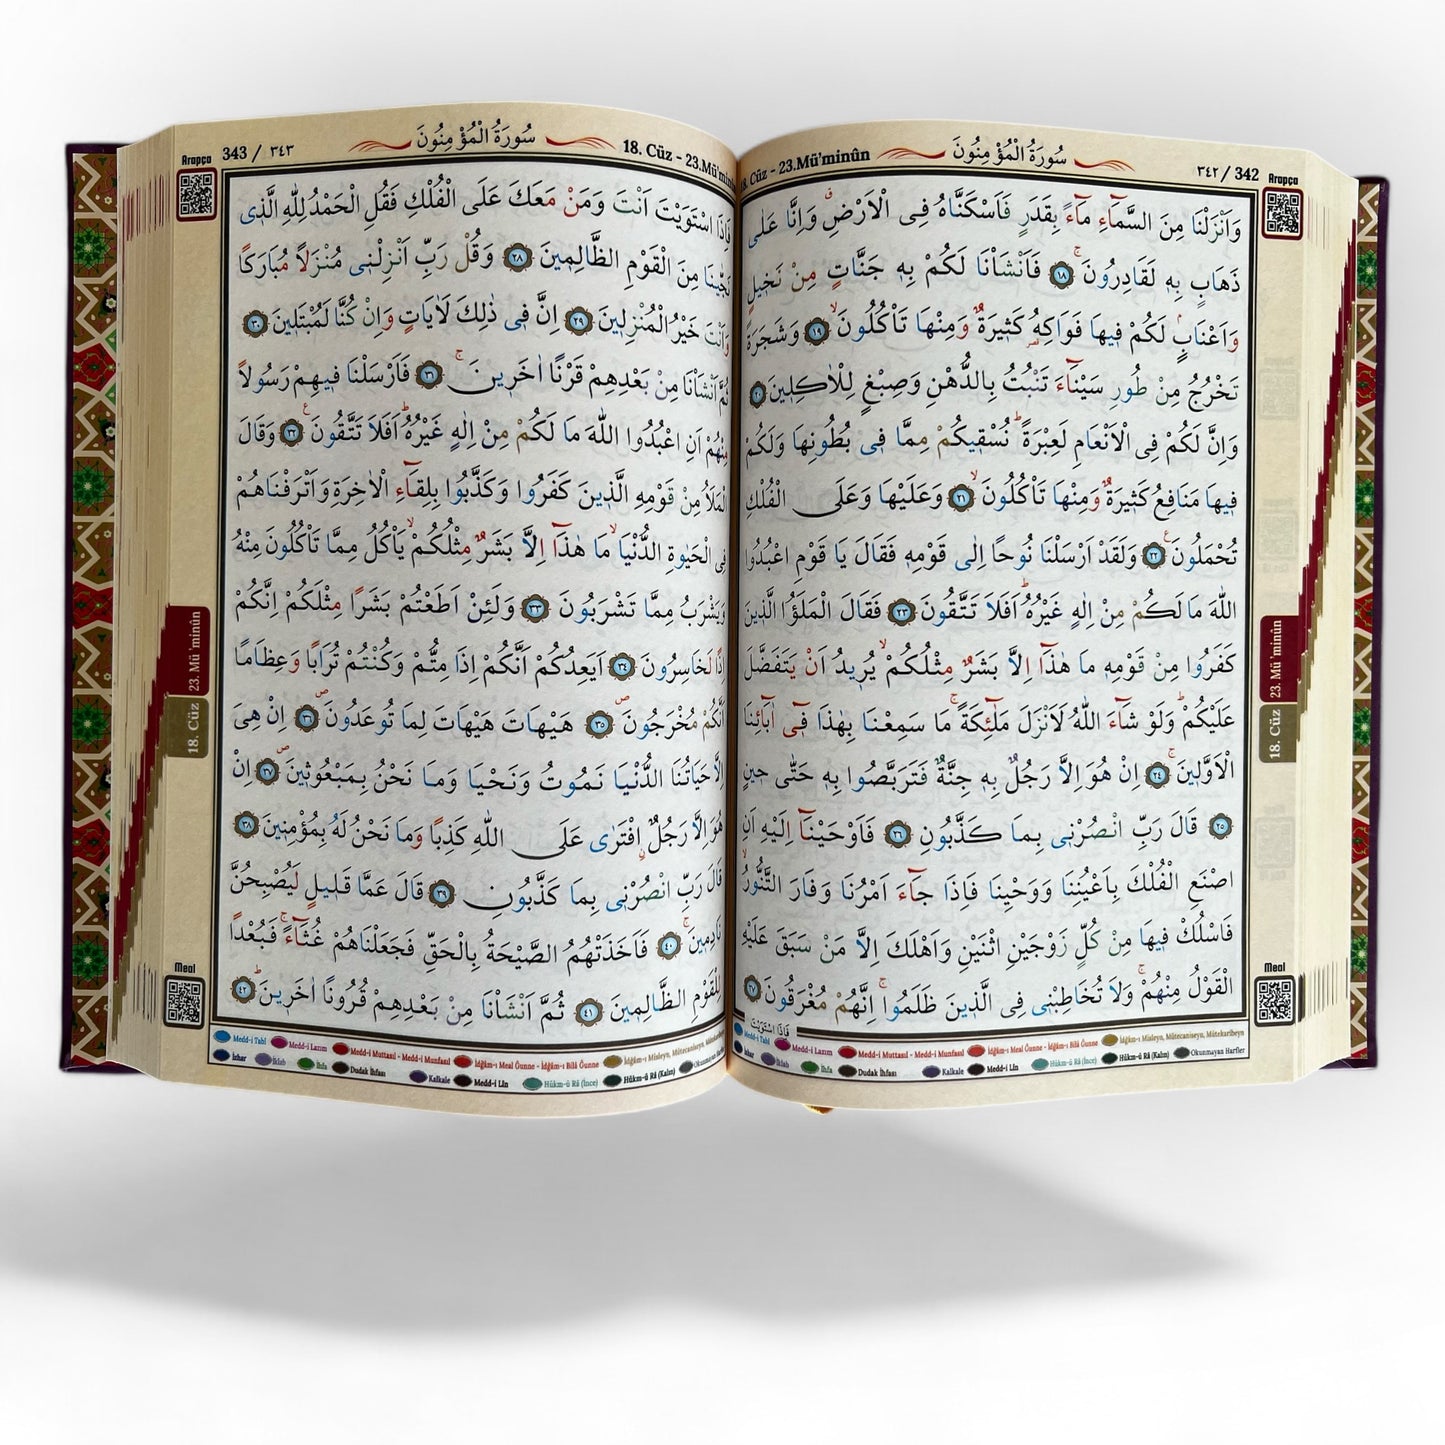 سُورَةُ الْمُؤْمِنُونَ
18. Cüz - 23.Mü'minûn
٣٤٢ / 342
Arapça
وَاَنْزَلْنَا مِنَ السَّمَٓاءِ مَٓاءً بِقَدَرٍ فَاَسْكَنَّاهُ فِى الْاَرْضِۗ وَاِنَّا عَلٰى
ذَهَابٍ بِهٖ لَقَادِرُونَۚ ﴿١٨﴾ فَاَنْشَاْنَا لَكُمْ بِهٖ جَنَّاتٍ مِنْ نَخٖيلٍ
وَاَعْنَابٍۢ لَكُمْ فٖيهَا فَوَاكِهُ كَثٖيرَةٌ وَمِنْهَا تَاْكُلُونَۙ ﴿١٩﴾ وَشَجَرَةً
تَخْرُجُ مِنْ طُورِ سَيْنَٓاءَ تَنْبُتُ بِالدُّهْنِ وَصِبْغٍ لِلْاٰكِلٖينَ ﴿٢٠﴾
وَاِنَّ لَكُمْ فِى الْاَنْعَامِ لَعِبْرَةًۜ نُسْقٖيكُمْ مِمَّا فٖى بُطُونِهَا وَلَكُمْ
فٖيهَا مَنَافِعُ كَثٖيرَةٌ وَمِنْهَا تَاْكُلُونَۙ ﴿٢١﴾ وَعَلَيْهَا وَعَلَى الْفُلْكِ
تُحْمَلُونَ۟ ﴿٢٢﴾ وَلَقَدْ اَرْسَلْنَا نُوحًا اِلٰى قَوْمِهٖ فَقَالَ يَا قَوْمِ اعْبُدُوا
اللّٰهَ مَا لَكُمْ مِنْ اِلٰهٍ غَيْرُهُۜ اَفَلَا تَتَّقُونَ ﴿٢٣﴾ فَقَالَ الْمَلَؤُا الَّذٖينَ
كَفَرُوا مِنْ قَوْمِهٖ مَا هٰذَٓا اِلَّا بَشَرٌ مِثْلُكُمْۙ يُرٖيدُ اَنْ يَتَفَضَّلَ
عَلَيْكُمْۜ وَلَوْ شَٓاءَ اللّٰهُ لَاَنْزَلَ مَلٰٓئِكَةًۚ مَا سَمِعْنَا بِهٰذَا فٖٓى اٰبَٓائِنَا
الْاَوَّلٖينَۚ ﴿٢٤﴾ اِنْ هُوَ اِلَّا رَجُلٌ بِهٖ جِنَّةٌ فَتَرَبَّصُوا بِهٖ حَتّٰى حٖينٍ
﴿٢٥﴾ قَالَ رَبِّ انْصُرْنٖى بِمَا كَذَّبُونِ ﴿٢٦﴾ فَاَوْحَيْنَٓا اِلَيْهِ اَنِ
اصْنَعِ الْفُلْكَ بِاَعْيُنِنَا وَوَحْيِنَا فَاِذَا جَٓاءَ اَمْرُنَا وَفَارَ التَّنُّورُۙ
فَاسْلُكْ فٖيهَا مِنْ كُلٍّ زَوْجَيْنِ اثْنَيْنِ وَاَهْلَكَ اِلَّا مَنْ سَبَقَ عَلَيْهِ
الْقَوْلُ مِنْهُمْۚ وَلَا تُخَاطِبْنٖى فِى الَّذٖينَ ظَلَمُواۚ اِنَّهُمْ مُغْرَقُونَ ﴿٢٧﴾
فَاِذَا اسْتَوَيْتَ
23. Mü'minûn
18. Cüz
Meal
Medd-i Tabî Medd-i Lazım Medd-i Muttasıl - Medd-i Munfasıl İdğâm-ı Meal Ğunne - İdğâm-ı Bilâ Ğunne İdğâm-ı Misleyn, Mütecaniseyn, Mütekaribeyn
İzhar İklab İhfa Dudak İhfası Kalkale Medd-i Lîn Hükm-ü Râ (İnce) Hükm-ü Râ (Kalın) Okunmayan Harfler
18. Cüz - 23.Mü'minûn
سُورَةُ الْمُؤْمِنُونَ
343 / ٣٤٣
Arapça
فَاِذَا اسْتَوَيْتَ اَنْتَ وَمَنْ مَعَكَ عَلَى الْفُلْكِ فَقُلِ الْحَمْدُ لِلّٰهِ الَّذٖى
نَجّٰينَا مِنَ الْقَوْمِ الظَّالِمٖينَ ﴿٢٨﴾ وَقُلْ رَبِّ اَنْزِلْنٖى مُنْزَلًا مُبَارَكًا
وَاَنْتَ خَيْرُ الْمُنْزِلٖينَ ﴿٢٩﴾ اِنَّ فٖى ذٰلِكَ لَاٰيَاتٍ وَاِنْ كُنَّا لَمُبْتَلٖينَ ﴿٣٠﴾
ثُمَّ اَنْشَاْنَا مِنْ بَعْدِهِمْ قَرْنًا اٰخَرٖينَۚ ﴿٣١﴾ فَاَرْسَلْنَا فٖيهِمْ رَسُولًا
مِنْهُمْ اَنِ اعْبُدُوا اللّٰهَ مَا لَكُمْ مِنْ اِلٰهٍ غَيْرُهُۜ اَفَلَا تَتَّقُونَ۟ ﴿٣٢﴾ وَقَالَ
الْمَلَاُ مِنْ قَوْمِهِ الَّذٖينَ كَفَرُوا وَكَذَّبُوا بِلِقَٓاءِ الْاٰخِرَةِ وَاَتْرَفْنَاهُمْ
فِى الْحَيٰوةِ الدُّنْيَاۙ مَا هٰذَٓا اِلَّا بَشَرٌ مِثْلُكُمْۙ يَاْكُلُ مِمَّا تَاْكُلُونَ مِنْهُ
وَيَشْرَبُ مِمَّا تَشْرَبُونَ ﴿٣٣﴾ وَلَئِنْ اَطَعْتُمْ بَشَرًا مِثْلَكُمْ اِنَّكُمْ
اِذًا لَخَاسِرُونَ ﴿٣٤﴾ اَيَعِدُكُمْ اَنَّكُمْ اِذَا مِتُّمْ وَكُنْتُمْ تُرَابًا وَعِظَامًا
اَنَّكُمْ مُخْرَجُونَۖ ﴿٣٥﴾ هَيْهَاتَ هَيْهَاتَ لِمَا تُوعَدُونَۖ ﴿٣٦﴾ اِنْ هِىَ
اِلَّا حَيَاتُنَا الدُّنْيَا نَمُوتُ وَنَحْيَا وَمَا نَحْنُ بِمَبْعُوثٖينَۖ ﴿٣٧﴾ اِنْ
هُوَ اِلَّا رَجُلٌ افْتَرٰى عَلَى اللّٰهِ كَذِبًا وَمَا نَحْنُ لَهُ بِمُؤْمِنٖينَ ﴿٣٨﴾
قَالَ رَبِّ انْصُرْنٖى بِمَا كَذَّبُونِ ﴿٣٩﴾ قَالَ عَمَّا قَلٖيلٍ لَيُصْبِحُنَّ
نَادِمٖينَۚ ﴿٤٠﴾ فَاَخَذَتْهُمُ الصَّيْحَةُ بِالْحَقِّ فَجَعَلْنَاهُمْ غُثَٓاءًۚ فَبُعْدًا
لِلْقَوْمِ الظَّالِمٖينَ ﴿٤١﴾ ثُمَّ اَنْشَاْنَا مِنْ بَعْدِهِمْ قُرُونًا اٰخَرٖينَۜ ﴿٤٢﴾
23. Mü'minûn
18. Cüz
Meal
Medd-i Tabî Medd-i Lazım Medd-i Muttasıl - Medd-i Munfasıl İdğâm-ı Meal Ğunne - İdğâm-ı Bilâ Ğunne İdğâm-ı Misleyn, Mütecaniseyn,
İzhar İklab İhfa Dudak İhfası Kalkale Medd-i Lîn Hükm-ü Râ (İnce) Hükm-ü Râ (Kalın) Okunmayan